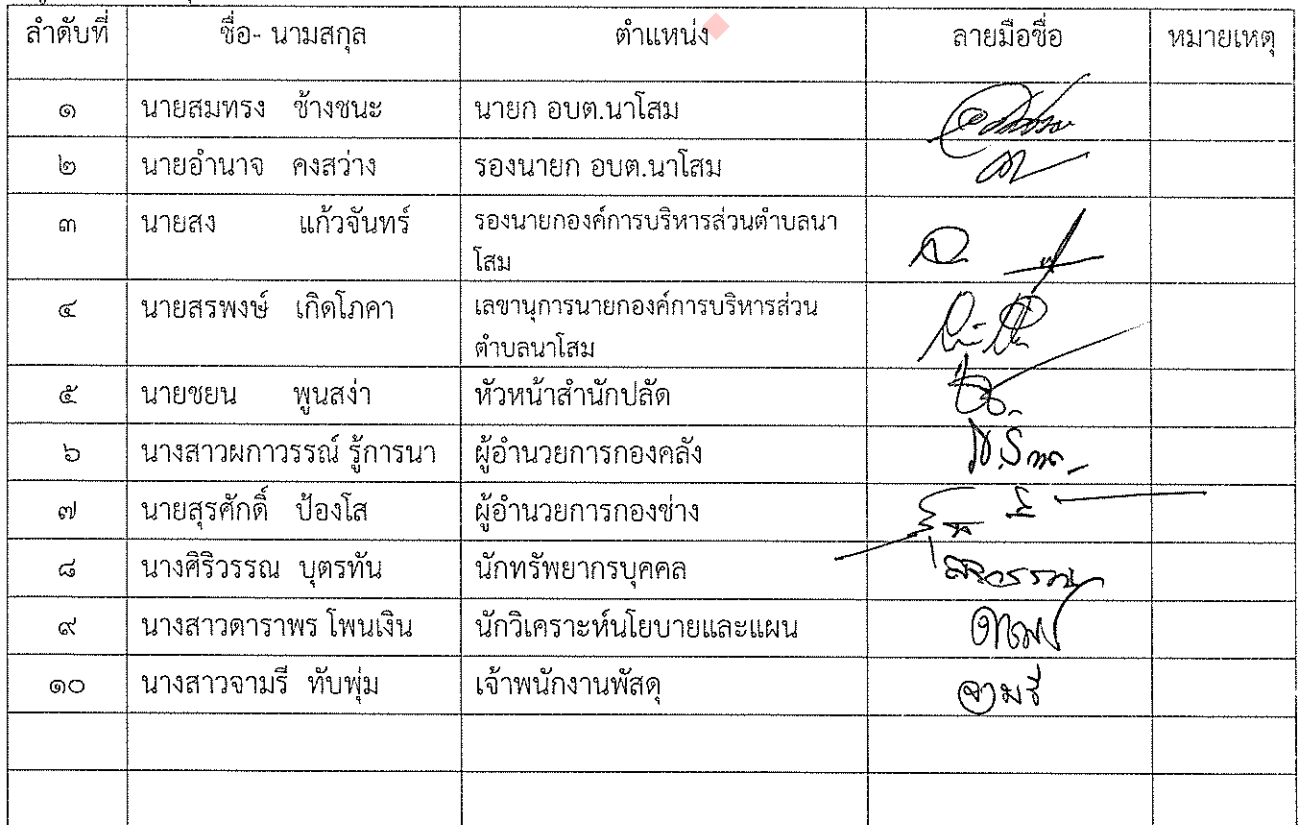 ลำดับที่ ชื่อ- นามสกุล ตำแหน่ง ลายมือชื่อ หมายเหตุ
๑ นายสมทรง ช้างชนะ นายก อบต.นาโสม
๒ นายอำนาจ คงสว่าง รองนายก อบต.นาโสม
๓ นายสง แก้วจันทร์ รองนายกองค์การบริหารส่วนตำบลนา
โสม
๔ นายสรพงษ์ เกิดโภคา เลขานุการนายกองค์การบริหารส่วน
ตำบลนาโสม
๕ นายชยน พูนสง่า หัวหน้าสำนักปลัด
๖ นางสาวผกาวรรณ์ รู้การนา ผู้อำนวยการกองคลัง
๗ นายสุรศักดิ์ ป้องโส ผู้อำนวยการกองช่าง
๘ นางศิริวรรณ บุตรทัน นักทรัพยากรบุคคล
๙ นางสาวดาราพร โพนเงิน นักวิเคราะห์นโยบายและแผน
๑๐ นางสาวจามรี ทับพุ่ม เจ้าพนักงานพัสดุ จามรี